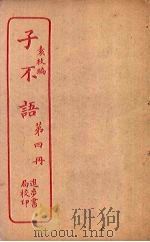 袁枚編
子不語
第四冊
進步書
局校印